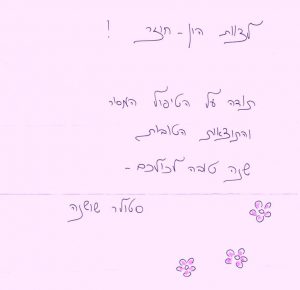 לצוות הין-חוזר !
תודה על הטיפול המסור
והתוצאות הטובות
שנה טובה לכולכם -
סטולר שושנה